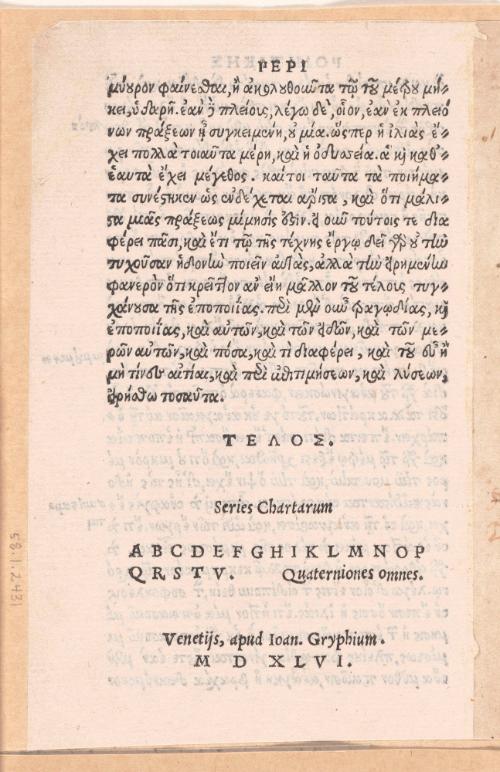 ΠΕΡΙ
μύουρον φαίνεσθαι, ἢ ἀκολουθοῦντα τῷ τοῦ μέτρου μή-
κει, ὑδαρῆ. ἐὰν δὲ πλείους, λέγω δὲ, οἷον, ἐὰν ἐκ πλειό
νων πράξεων ᾖ συγκειμένη, οὐ μία. ὥσπερ ἡ ἰλιὰς ἔ-
χει πολλὰ τοιαῦτα μέρη, καὶ ἡ ὀδυσσεία. ἃ καὶ καθ'
ἑαυτὰ ἔχει μέγεθος. καίτοι ταῦτα τὰ ποιήμα-
τα συνέστηκεν ὡς ἐνδέχεται ἄριστα, καὶ ὅτι μάλι-
στα μιᾶς πράξεως μίμησίς ἐστιν. εἰ οὖν τούτοις τε δια
φέρει πᾶσι, καὶ ἔτι τῷ τῆς τέχνης ἔργῳ δεῖ γὰρ οὐ τὴν
τυχοῦσαν ἡδονὴν ποιεῖν αὐτὰς, ἀλλὰ τὴν εἰρημένην
φανερὸν ὅτι κρεῖττον ἂν εἴη μᾶλλον τοῦ τέλους τυγ-
χάνουσα τῆς ἐποποιΐας. περὶ μὲν οὖν τραγῳδίας, καὶ
ἐποποιΐας, καὶ αὐτῶν, καὶ τῶν εἰδῶν, καὶ τῶν με-
ρῶν αὐτῶν, καὶ πόσα, καὶ τί διαφέρει, καὶ τοῦ εὖ ἢ
μὴ τίνες αἰτίαι, καὶ περὶ ἐπιτιμήσεων, καὶ λύσεων,
εἰρήσθω τοσαῦτα.
ΤΕΛΟΣ.
Series Chartarum
A B C D E F G H I K L M N O P
Q R S T V. Quaterniones omnes.
Venetijs, apud Ioan. Gryphium.
M D XLVI.
58.1.2.431